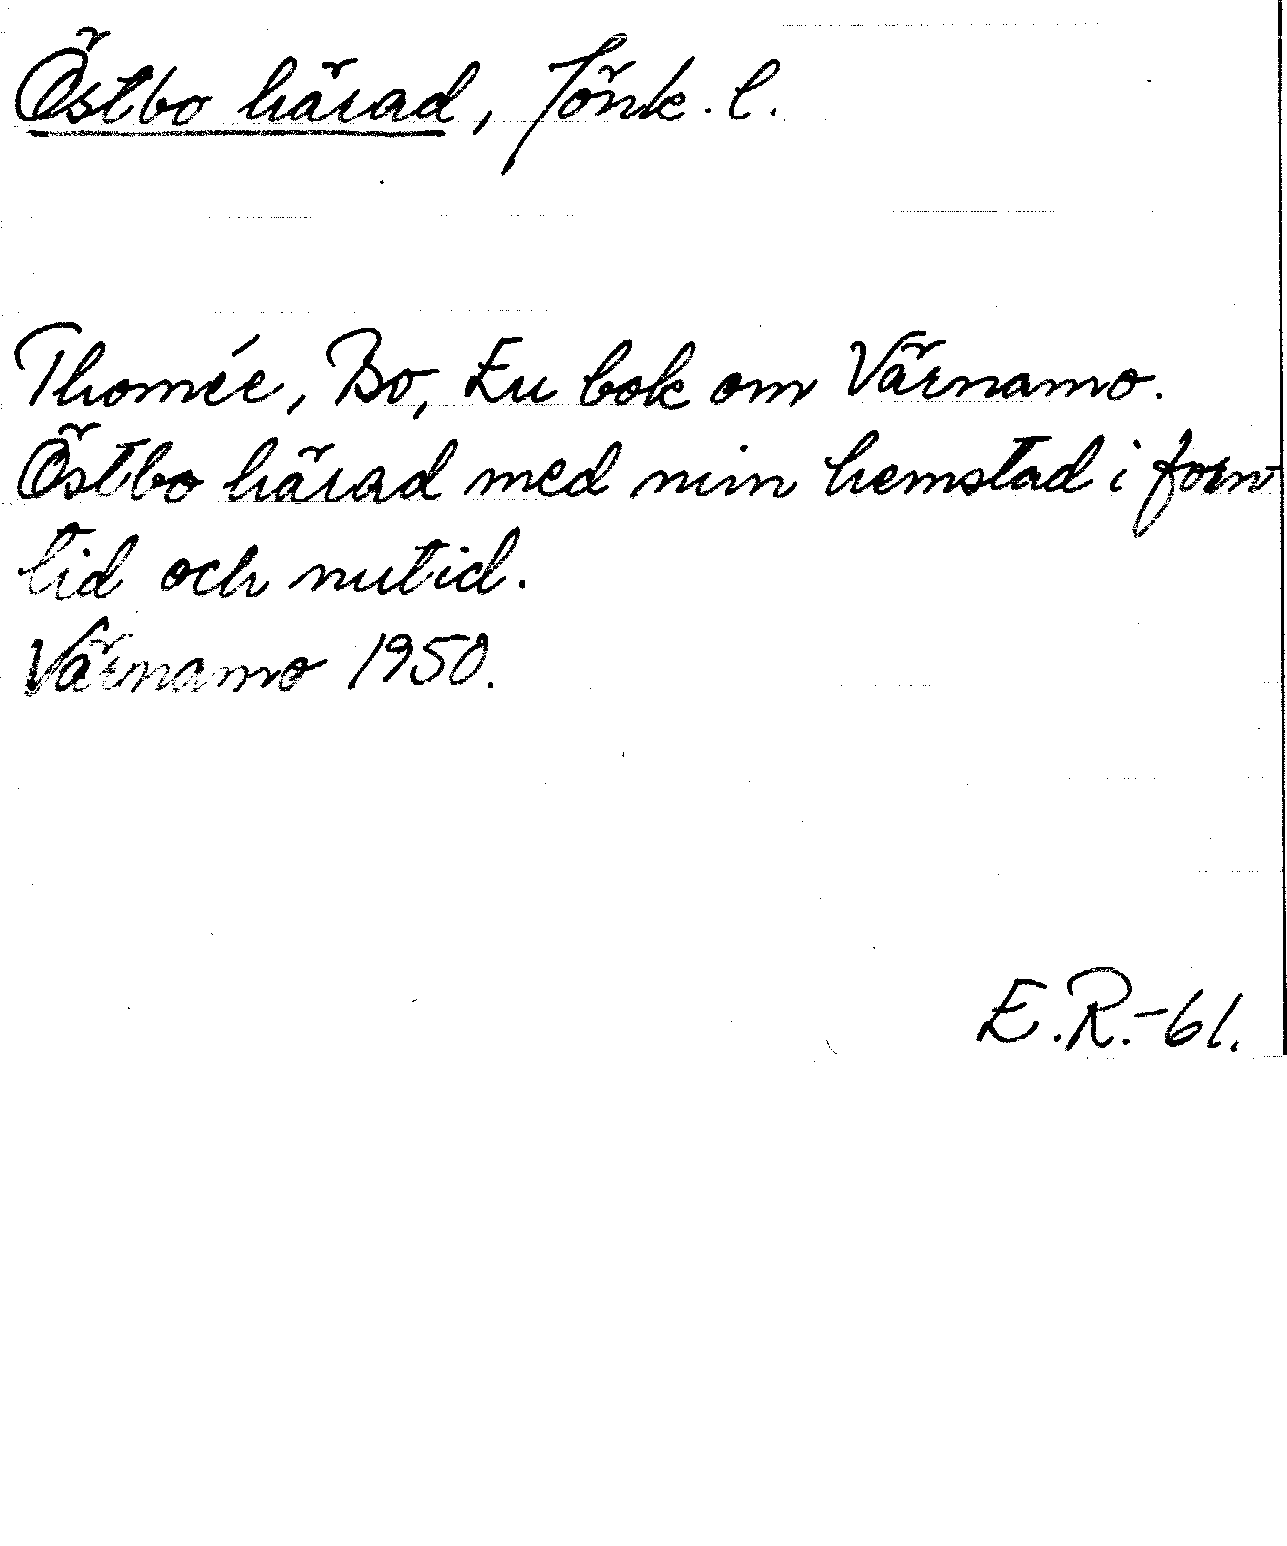 Östbo härad, Jönk. l.
Thomée, Bo, En bok om Värnamo.
Östbo härad med min hemstad i forn-
tid och nutid.
Värnamo 1950.
E.R.-61.